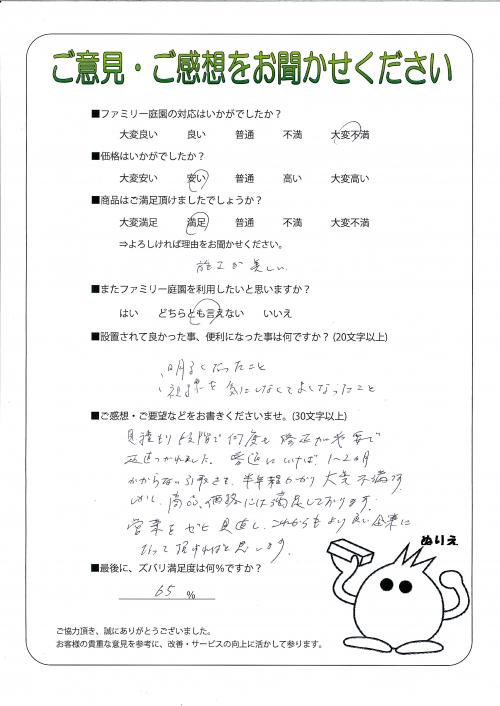 ご意見・ご感想をお聞かせください
■ファミリー庭園の対応はいかがでしたか？
大変良い 良い 普通 不満 大変不満
■価格はいかがでしたか？
大変安い 安い 普通 高い 大変高い
■商品はご満足頂けましたでしょうか？
大変満足 満足 普通 不満 大変不満
⇒よろしければ理由をお聞かせください。
施工が美しい
■またファミリー庭園を利用したいと思いますか？
はい どちらとも言えない いいえ
■設置されて良かった事、便利になった事は何ですか？(20文字以上)
明るくなったこと
視線を気にしなくてよくなったこと
■ご感想・ご要望などをお書きくださいませ。(30文字以上)
見積もり段階で何度も修正が必要で
正直つかれました。普通にいけば、1~2ヵ月
かからない引取きを、半年程かかり大変不満です。
しかし、商品、価格には満足しております。
営業をぜひ見直し、これからもより良い企業に
なって頂ければと思います。
ぬりえ
■最後に、ズバリ満足度は何％ですか？
65 %
ご協力頂き、誠にありがとうございました。
お客様の貴重な意見を参考に、改善・サービスの向上に活かして参ります。